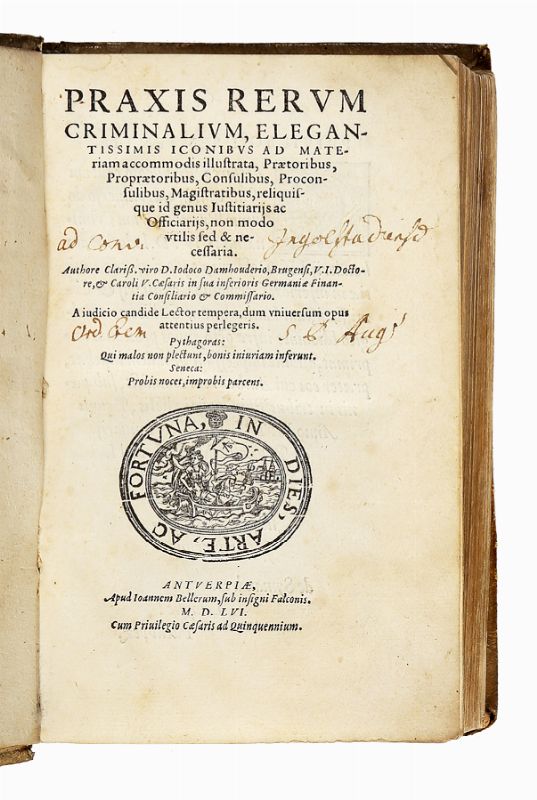 PRAXIS RERVM
CRIMINALIVM, ELEGAN-
TISSIMIS ICONIBVS AD MATE-
riam accommodis illustrata, Prætoribus,
Proprætoribus, Consulibus, Procon-
sulibus, Magistratibus, reliquis-
que id genus Iustitiarijs ac
Officiarijs, non modo
vtilis sed & ne-
cessaria.
ad Conv. Ingolstadiensē
Authore Clariss. viro D. Iodoco Damhouderio, Brugensi, V.I. Docto-
re, & Caroli V. Cæsaris in sua inferioris Germaniæ Finan-
tia Consiliario & Commissario.
A iudicio candide Lector tempera, dum vniuersum opus
attentius perlegeris.
Ord. Erem S. P. Augˢ
Pythagoras:
Qui malos non plectunt, bonis iniuriam inferunt.
Seneca:
Probis nocet, improbis parcens.
FORTVNA, IN DIES, ARTE, AC
ANTVERPIÆ,
Apud Ioannem Bellerum, sub insigni Falconis.
M. D. LVI.
Cum Priuilegio Cæsaris ad Quinquennium.